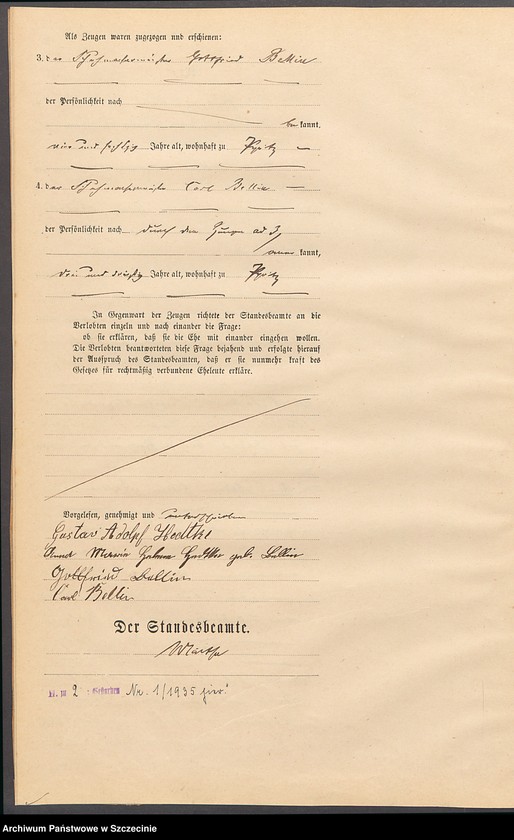 Als Zeugen waren zugezogen und erschienen:
3. der Schuhmachermeister Gottfried Bellin
der Persönlichkeit nach
be kannt,
vier und sechzig Jahre alt, wohnhaft zu Pyritz
4. der Schuhmachermeister Carl Bellin
der Persönlichkeit nach durch den Zeugen ad 3,
kannt,
drei und dreißig Jahre alt, wohnhaft zu Pyritz
In Gegenwart der Zeugen richtete der Standesbeamte an die
Verlobten einzeln und nach einander die Frage:
ob sie erklären, daß sie die Ehe mit einander eingehen wollen.
Die Verlobten beantworteten diese Frage bejahend und erfolgte hierauf
der Ausspruch des Standesbeamten, daß er sie nunmehr kraft des
Gesetzes für rechtmäßig verbundene Eheleute erkläre.
Vorgelesen, genehmigt und unterschrieben
Gustav Adolf
geb. Bellin
Gottfried Bellin
Carl Bellin
Der Standesbeamte.
2 Gestorben Nr. 1/1935 hier.
Archiwum Państwowe w Szczecinie